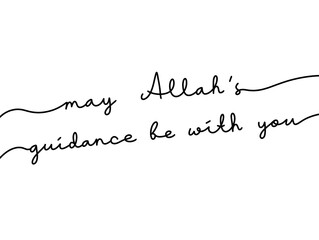 may Allah's
guidance be with you